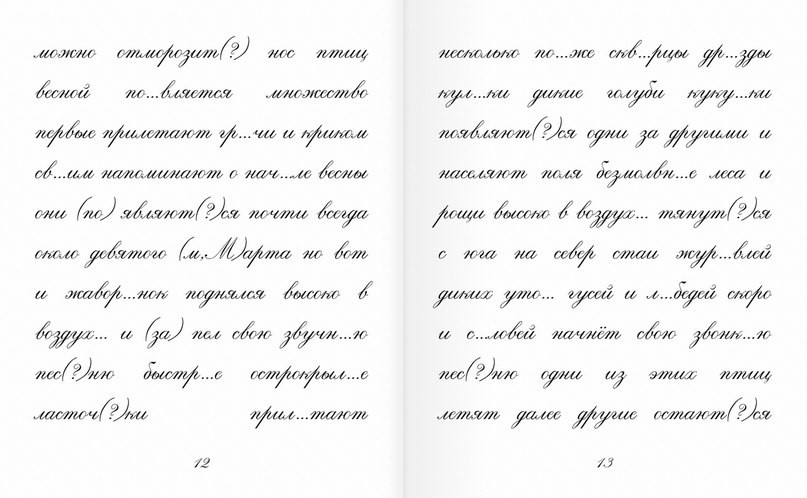 можно отморозит(?) нос птиц
весной по...вляется множество
первые прилетают гр...чи и криком
св...им напоминают о нач...ле весны
они (по) являют(?)ся почти всегда
около девятого (м,М)арта но вот
и жавор...нок поднялся высоко в
воздух... и (за) пел свою звучн...ю
пес(?)ню быстр...е острокрыл...е
ласточ(?)ки прил...тают
12
несколько по...же скв...рцы др...зды
кул...ки дикие голуби куку...ки
появляют(?)ся одни за другими и
населяют поля безмолвн...е леса и
рощи высоко в воздух... тянут(?)ся
с юга на север стаи жур...влей
диких уто... гусей и л...бедей скоро
и с...ловей начнёт свою звонк...ю
пес(?)ню одни из этих птиц
летят далее другие остают(?)ся
13